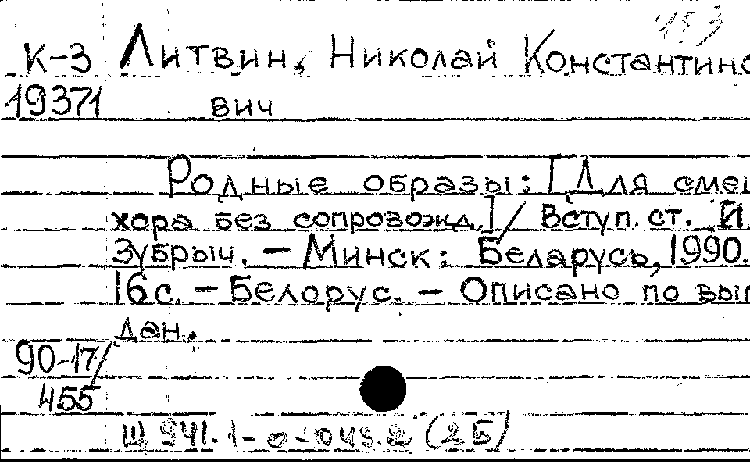 453
К-3 Литвин, Николай Константино
19371 вич
Родные образы: [Для смеш
хора без сопровожд.] / Вступ. ст. И.
Зубрыч. — Минск: Беларусь, 1990.
16 с. — Белорус. — Описано по вып
дан.
90-17/
455
Ш 941.1-0-048.2 (2Б)